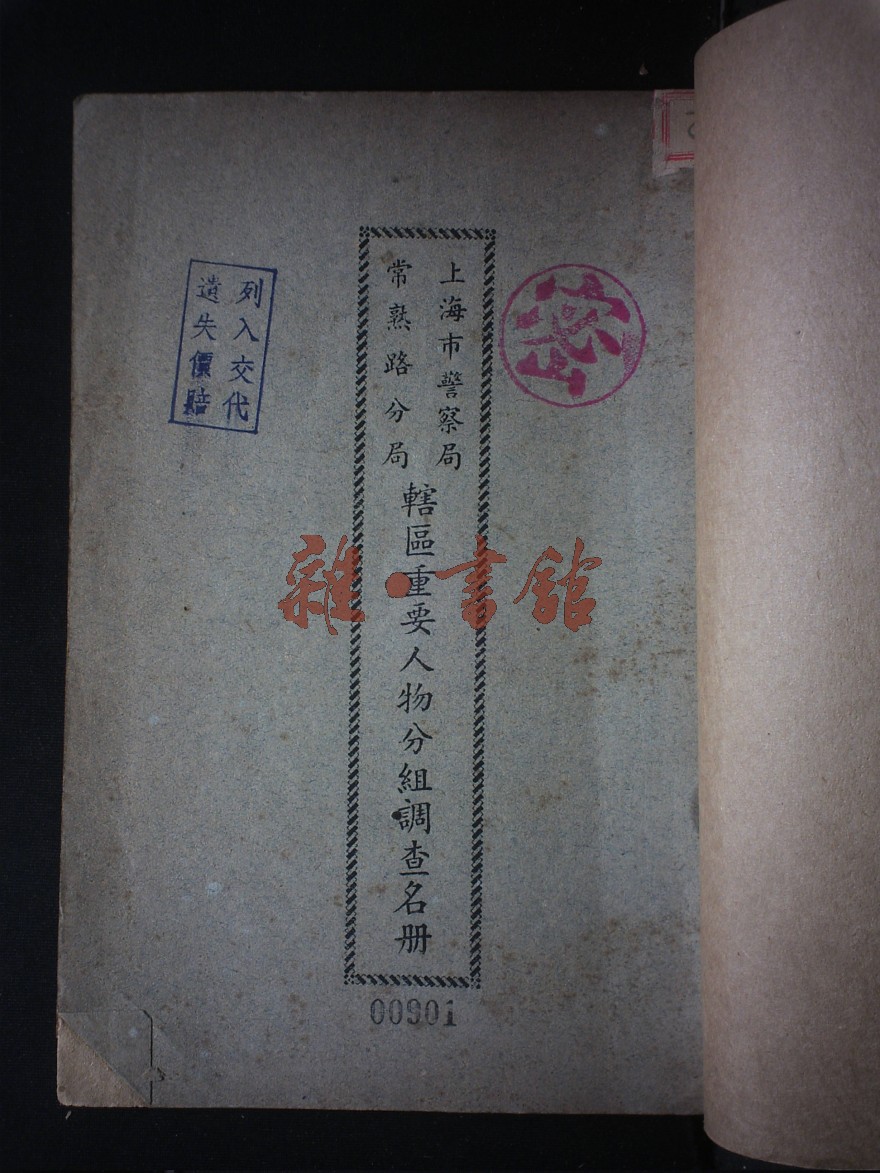 密
上海市警察局
常熟路分局
轄區重要人物分組調查名册
列入交代
遺失價賠
00901
雜·書館